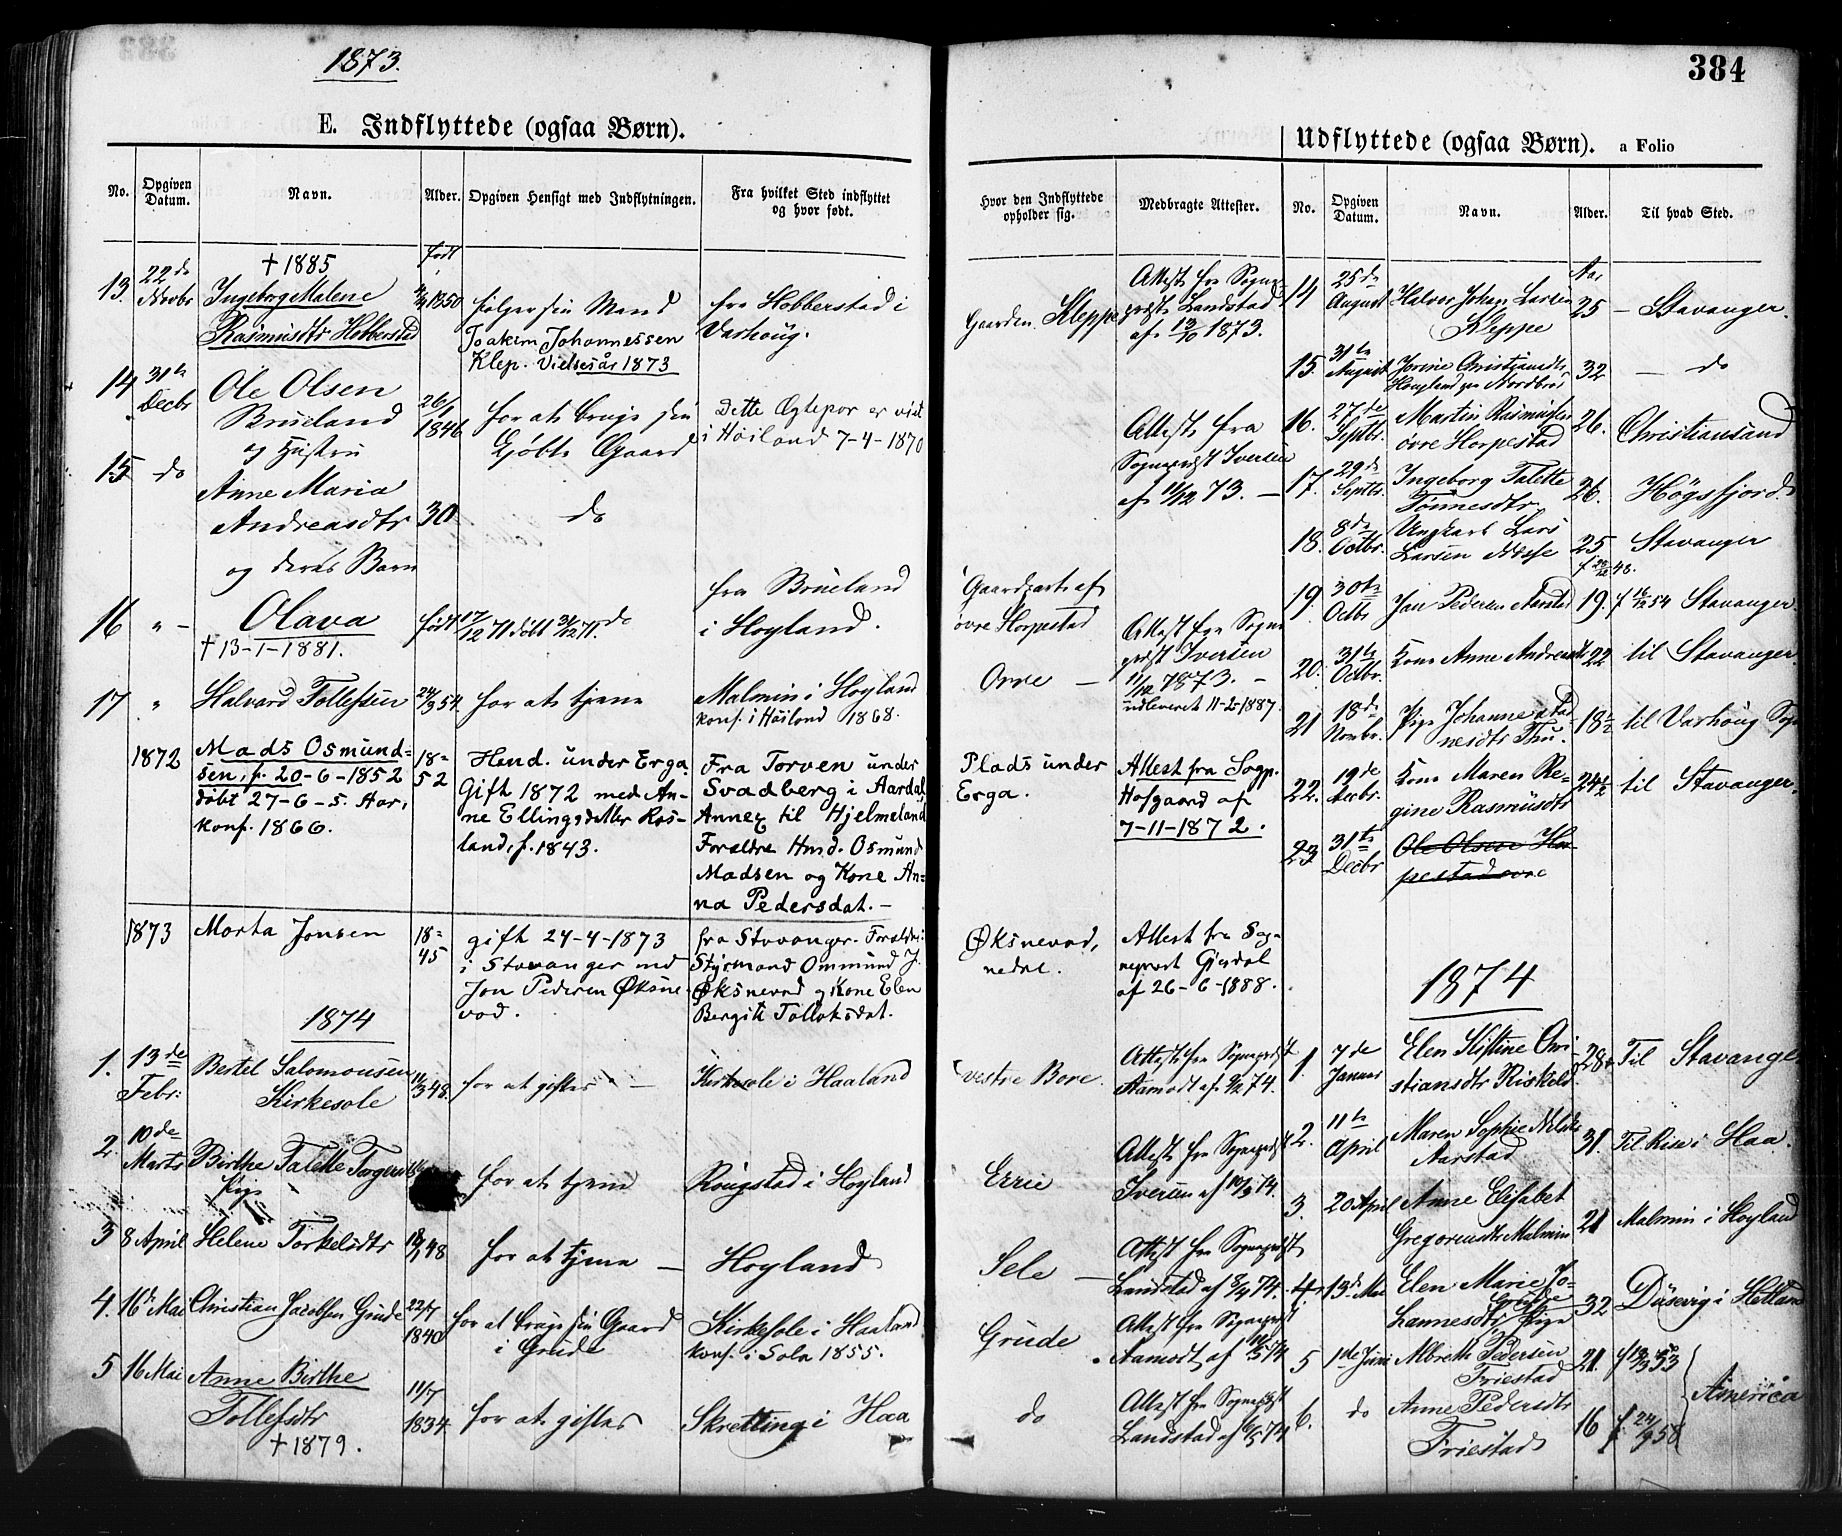 1873.
384
E. Indflyttede (ogsaa Børn).
Udflyttede (ogsaa Børn). a Folio
No.
Opgiven Datum.
Navn.
Alder.
Opgiven Hensigt med Indflytningen.
Fra hvilket Sted indflyttet og hvor født.
Hvor den Indflyttede opholder sig.
Medbragte Attester.
No.
Opgiven Datum.
Navn.
Alder.
Til hvad Sted.
† 1885
13. 22de Novbr Ingeborg Malene
Rasmusdtr Hobberstad
født 1850
følger sin Mand
Joakim Johannessen
Klep. Vielsesår 1873
fra Hobberstad i
Varhoug.
Gaarden Kleppe
Attest fra Sogne-
prest Landstad
af 13/10 1873.
14 31te Decbr Ole Olsen
Brueland
og Hustru
26/1 1846
for at bruge sin
Kjøbte Gaard
Dette Ægtepar er viet
i Høiland 7-4-1870
Attest fra
Sogneprest Iversen
af 11/12 73. -
15 do
Anne Maria
Andreasdtr
og deres Barn
30
do
16 " - Olava
† 13-1-1881.
født 17/12 71 døbt 31/12 71. do
fra Brueland
i Hoyland.
Gaardpart af
øvre Horpestad
17 " Halvard Tollefsen
24/3 54
for at tjene
Malmin i Hoyland
konf. i Høiland 1868.
Orre -
Attest fra Sogne
prest Iversen
11/12 1873. -
udleveret 11-2-1887.
1872 Mads Osmund-
sen, f. 20-6-1852
døbt 27-6-s. Aar,
konf. 1866.
18-
52
Hmd. under Erga
Gift 1872 med An-
ne Ellingsdatter Ros-
land, f. 1843.
Fra Torven under
Svadberg i Aardal
Annex til Hjelmeland
Forældre Hmd. Osmund
Madsen og Kone An-
na Pedersdat. -
Plads under
Erga.
Attest fra Sogp.
Hofgaard af
7-11-1872.
1873 Marta Jonsen
18-
45
gift 24-4-1873
i Stavanger med
Jon Pedersen Øksne-
vad.
fra Stavanger. Forældre:
Styrmand Ommund J.
Øksnevad og Kone Elen
Bergite Tollaksdat.
Øksnevad,
nedre.
Attest fra Sog-
neprest Gjesdal
af 26-6-1888.
1874
1. 13de Febr: Bertel Salomonsen
Kirkesole
11/3 48.
for at giftes -
Kirkesole i Haaland
vestre Bore.
Attest fra Sogneprest
Aamodt af 9/2 74.
2. 10de Marts Birthe Talette Torgersdtr
Pige
for at tjene
Rougstad i Hoyland
Erzie
Attest fra Sogneprest
Iversen af 10/3 74.
3 8 April Helene Torkelsdtr
48
for at tjene -
Hoyland
Sele -
Attest fra Sogneprest
Landstad af 8/4 74.
4. 16de Mai Christian Jacobsen Grude
22/7 1840
for at bruge sin Gaard
i Grude
Kirkesole i Haaland
konf. i Sola 1855.
Grude
Attest fra Sogneprest
Aamodt af 16/5 74
5 16 Mai Anne Birthe
Tollefsdtr
† 1879.
11/7 1834
for at giftes
Skretting i Haa
do
Attest fra Sogneprest
Landstad af 16/5 74
14 25de August Halvor Johan Larsen
Kleppe
Aar 25 - Stavanger.
15. 31te August Jorine Christiansdtr
32 - do
16. 27de Septbr. Martin Rasmussen
øvre Horpestad
26. Christiansand
17. 29de Septbr. Ingeborg Talette
Tonnesdtr
26. Högsfjord
18. 8de Octbr. Ungkarl Lars
Larsen Næse
25 Stavanger
19. 30te Octbr Jan Pedersen Aarstad
19. f 16/12 54 Stavanger
20. 31te Octbr. Kone Anne Andreasdtr
22 til Stavanger.
21 18de Novbr. Pige Johanne Ad
nesdtr Thu.
18½ til Varhoug Sogn
22. 19de Decbr. Kone Maren Re-
gine Rasmusdtr
24½ til Stavanger.
23 31te Decbr Ole Olsen Hor-
pestad øvre
1874
1. 7de Januar Elen Kistine Chri-
stiansdtr Riskeld
28 Til Stavange
2. 11te April Maren Sophie Nilsdtr
Aarstad
31. Til Rise i Haa.
3. 20 April Anne Elisabet
Gregoriusdtr Malmin
21 Malmin i Hoyland
4 13de Mai Elen Marie Jo-
hannesdtr Pige
32 Dusevig i Hetland
5 1de Juni Albreth Pedersen
Friestad
21. 53
6. do Anne Pedersdtr
Friestad
16 f. 24/9 58
America